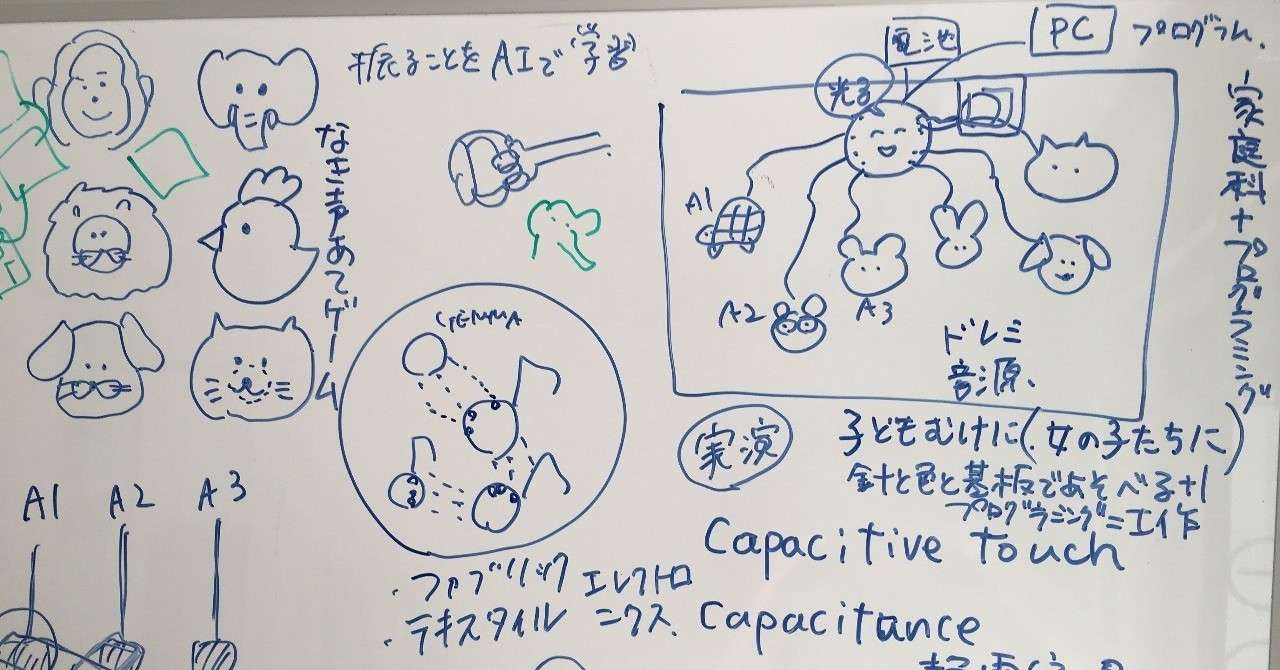 振ることをAIで学習
電池
PC
プログラム.
光る
家庭科+プログラミング
なきごえあてゲーム
A1
A2
A3
ドレミ
音源.
GEMMA
実演
子どもむけに(女の子たちに)
針と色と基板であそべる+1
プログラミング=工作
A1 A2 A3
Capacitive touch
・ファブリック エレクトロ
・テキスタイル ニクス.
Capacitance